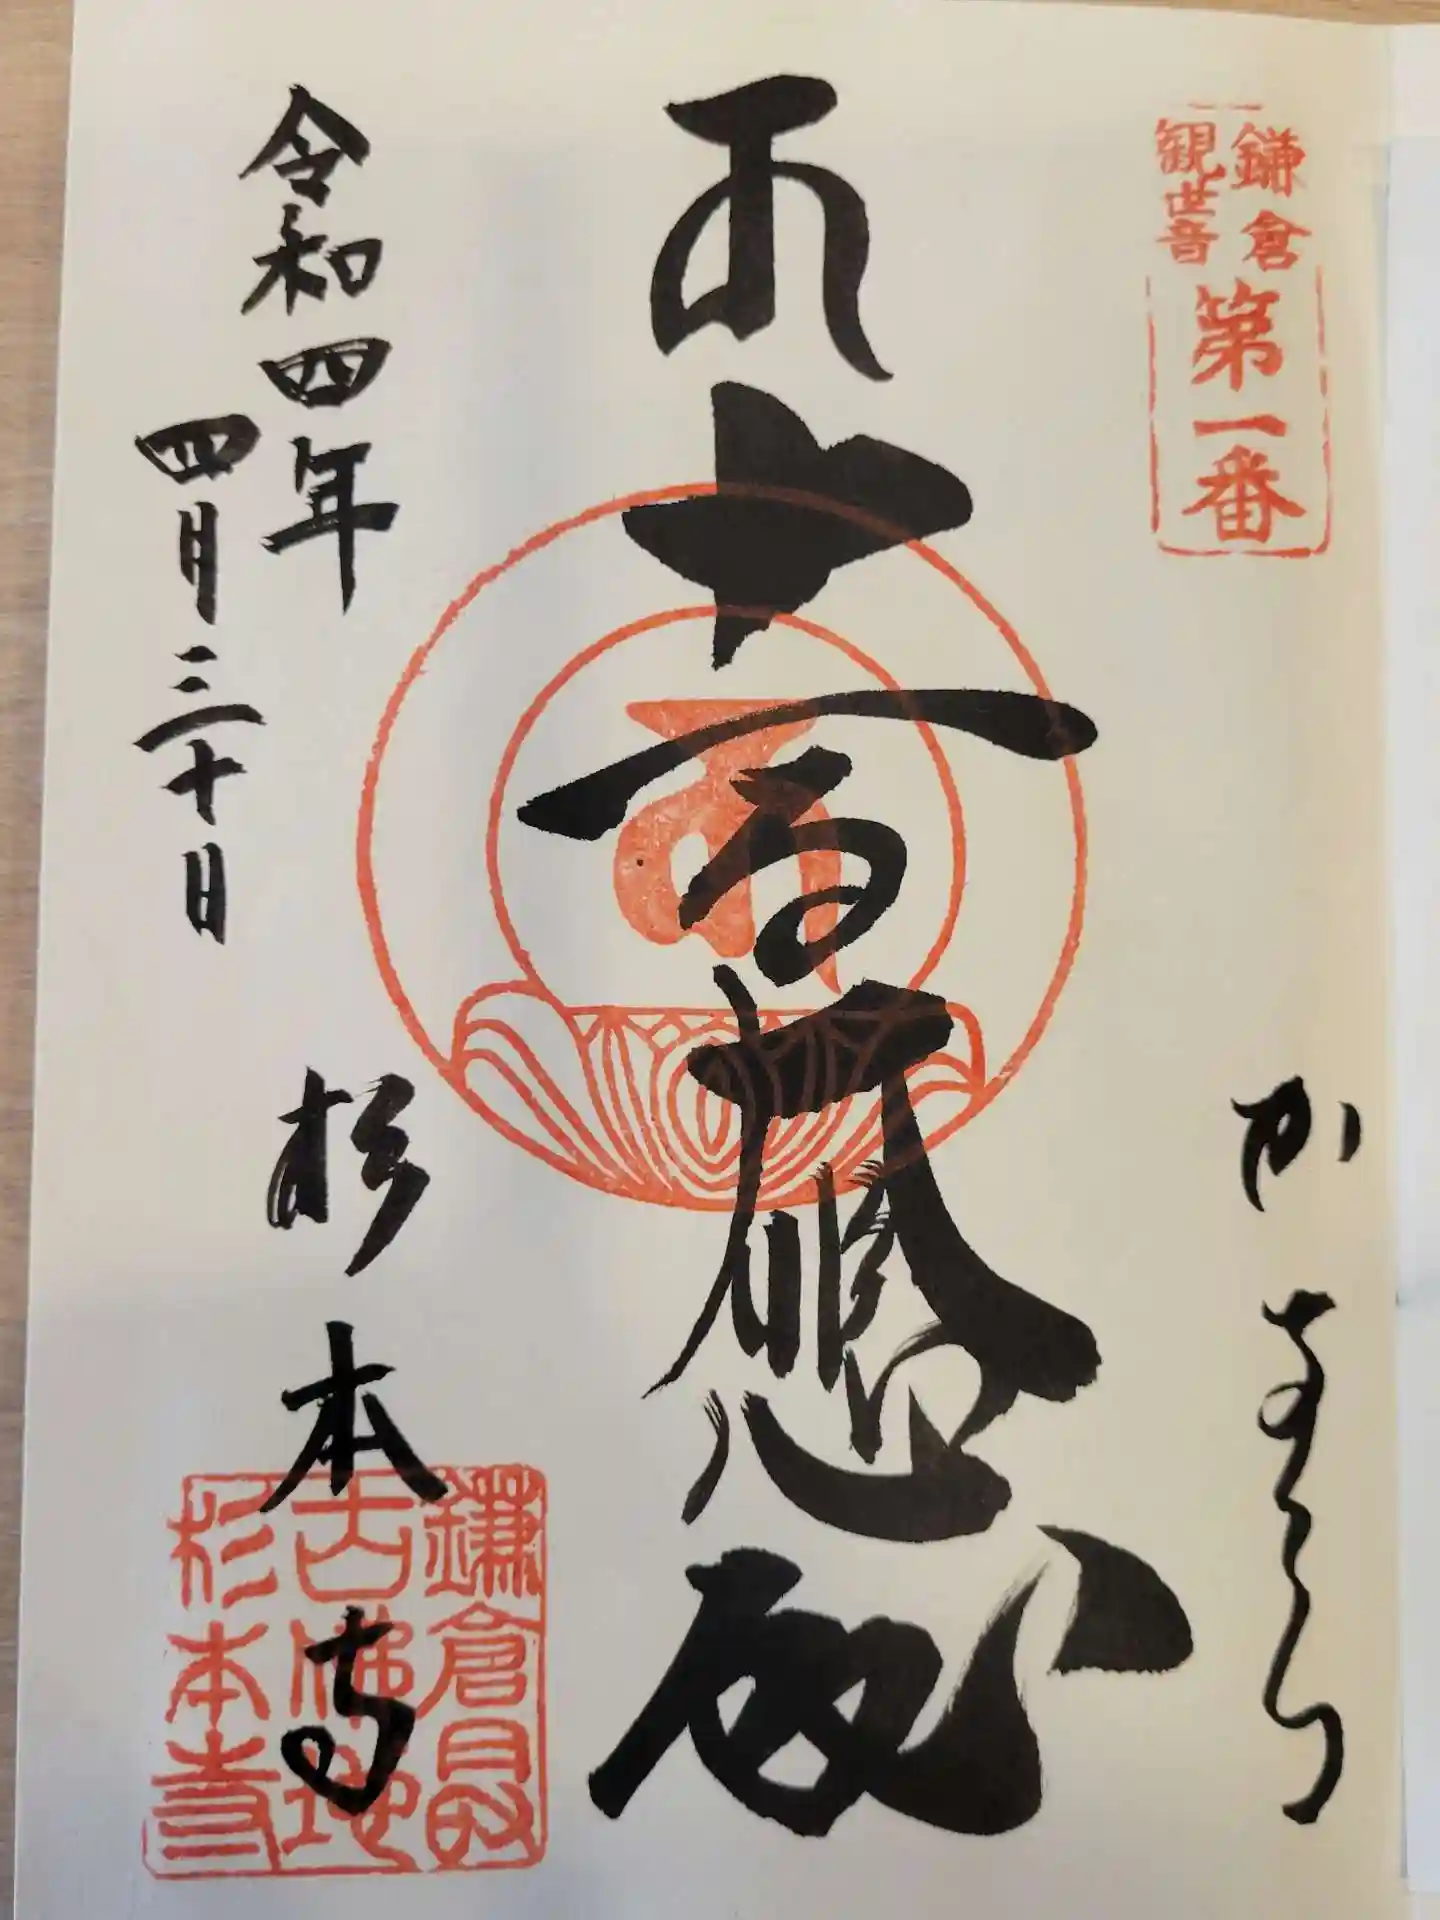 鎌倉
観世音
第一番
かまくら
十一面
大悲殿
令和四年
四月三十日
杉本寺
鎌倉最
古佛地
杉本寺